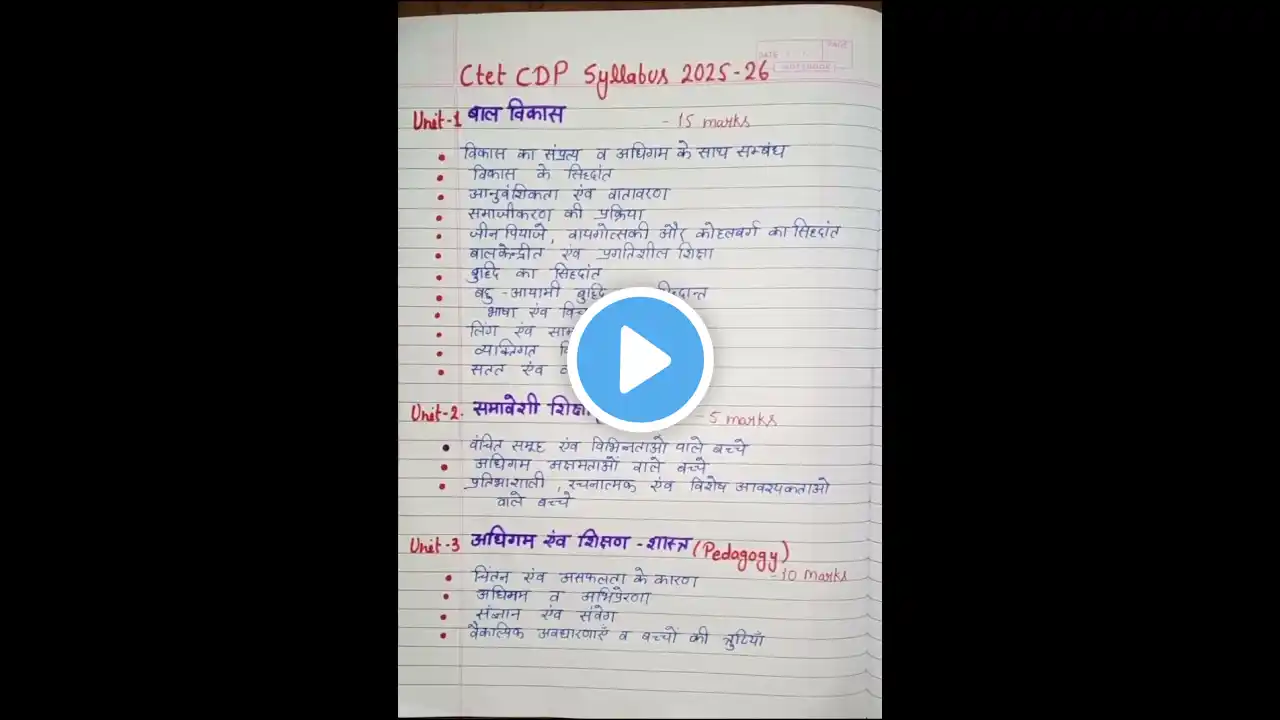 DATE
PAGE
Ctet CDP Syllabus 2025-26
Unit-1 बाल विकास - 15 marks
विकास का संप्रत्य व अधिगम के साथ सम्बंध
विकास के सिद्दांत
आनुवंशिकता एंव वातावरण
समाजीकरण की प्रक्रिया
जीन पियाजे, वायगोत्सकी और कोहलबर्ग का सिद्दांत
बालकेन्द्रीत एंव प्रगतिशील शिक्षा
बुद्दि का सिद्दांत
बहु -आयामी बुद्दि
भाषा एंव
लिंग एंव
व्यक्तिगत
सतत एंव
Unit-2. समावेशी शिक्षा - 5 marks
वंचित समूह एंव विभिन्नताओ वाले बच्चे
अधिगम अक्षमताओं वाले बच्चे
प्रतिभाशाली , रचनात्मक एंव विशेष आवश्यकताओ
वाले बच्चे
Unit-3 अधिगम एंव शिक्षण - शास्त्र (Pedagogy)
-10 marks
चिंतन एंव असफलता के कारण
अधिगम व अभिप्रेरणा
संज्ञान एंव संवेग
वैकल्पिक अवधारणाएँ व बच्चों की त्रुटियाँ